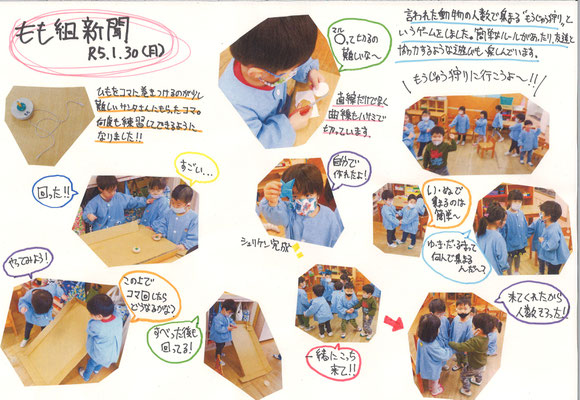 もも組新聞
R5.1.30(月)
ひもをコマに巻きつけるのが少し
難しいサンタさんにもらったコマ。
何度も練習してできるように
なりました!!
回った!!
すごい…
やってみよう!
この上で
コマ回したら
どうなるかな?
すべった後も
回ってる!
マル
〇って切るの
難しいな〜
直線だけでなく
曲線もハサミで
切っています。
自分で
作れたよ!
シュリケン完成
言われた動物の人数で集まる“もうじゅう狩り”と
いうゲームをしました。簡単なルールがあったり、友達と
協力するような遊びも楽しんでいます。
もうじゅう狩りに行こうよ〜!!
い・ぬで
集まるのは
簡単〜
ゆ・き・だ・るまって
何人で集まる
んだ〜?
一緒にこっち
来て!!
来てくれたから
人数そろった!